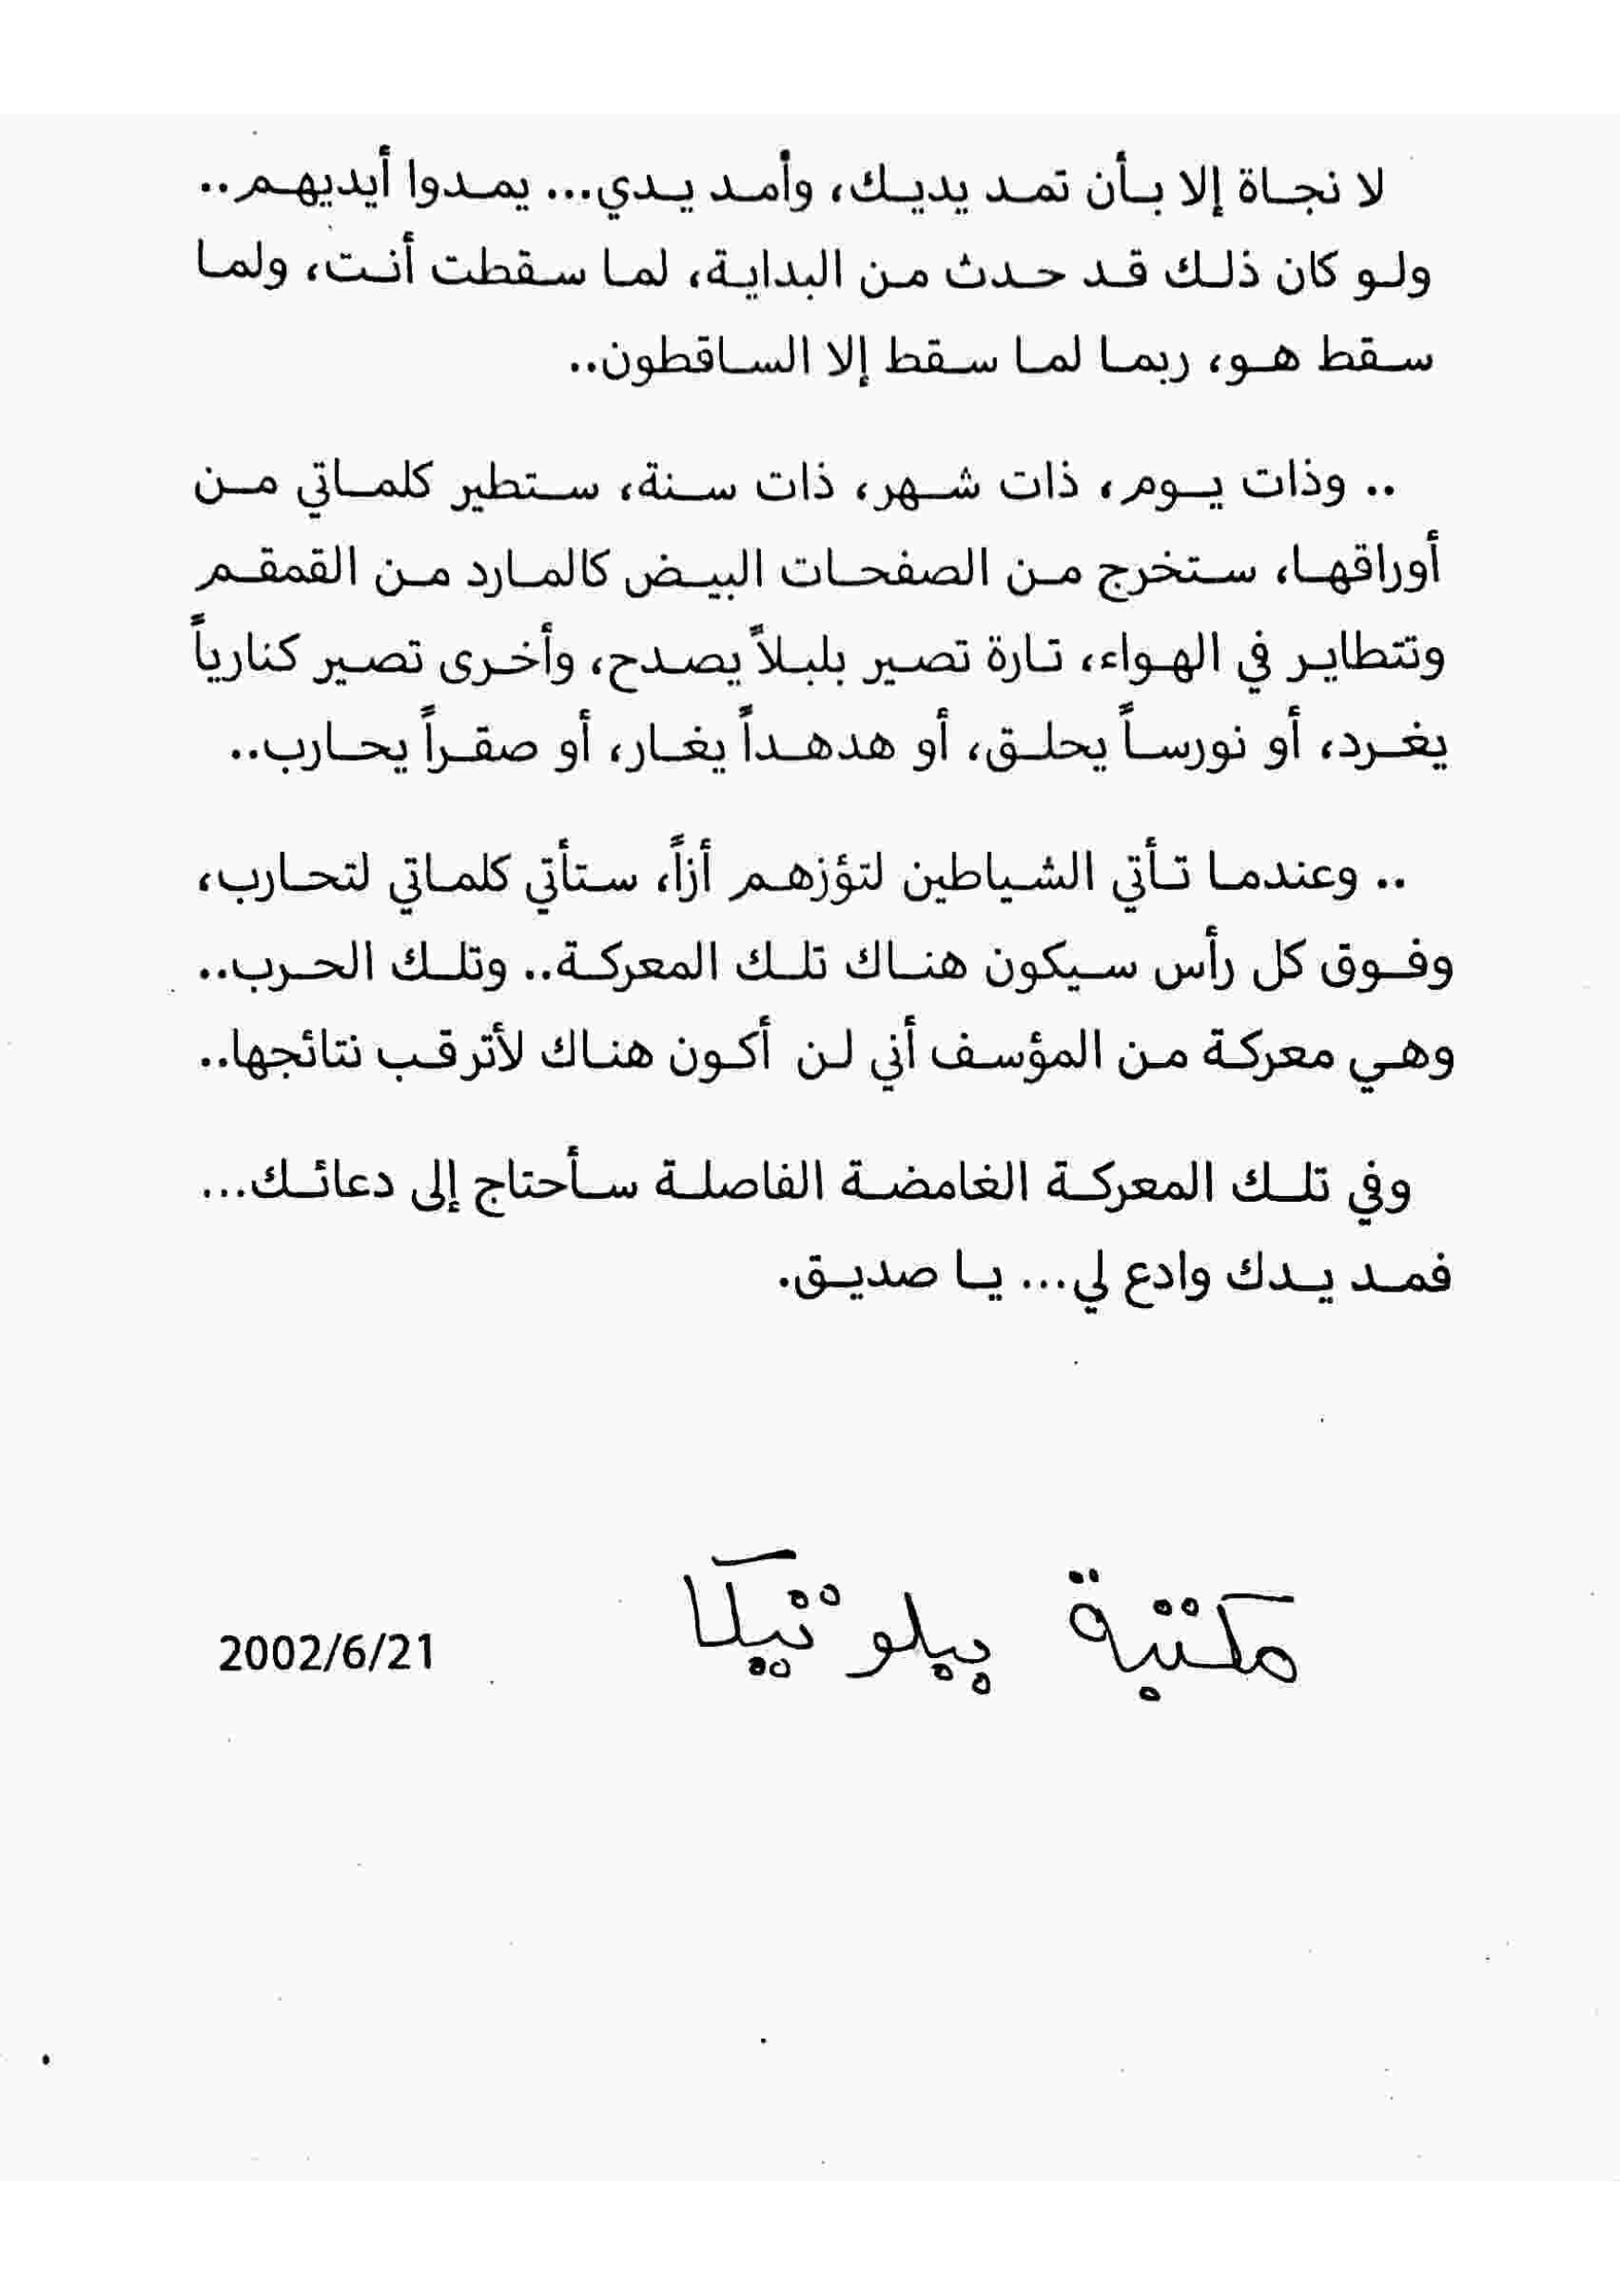 لا نجاة إلا بأن تمد يديك، وأمد يدي... يمدوا أيديهم..
ولو كان ذلك قد حدث من البداية، لما سقطت أنت، ولما
سقط هو، ربما لما سقط إلا الساقطون..
.. وذات يوم، ذات شهر، ذات سنة، ستطير كلماتي من
أوراقها، ستخرج من الصفحات البيض كالمارد من القمقم
وتتطاير في الهواء، تارة تصير بلبلاً يصدح، وأخرى تصير كنارياً
يغرد، أو نورساً يحلق، أو هدهداً يغار، أو صقراً يحارب..
.. وعندما تأتي الشياطين لتؤزهم أزاً، ستأتي كلماتي لتحارب،
وفوق كل رأس سيكون هناك تلك المعركة.. وتلك الحرب..
وهي معركة من المؤسف أني لن أكون هناك لأترقب نتائجها..
وفي تلك المعركة الغامضة الفاصلة سأحتاج إلى دعائك...
فمد يدك وادع لي... يا صديق.
مكتبة بيلوتيكا
2002/6/21